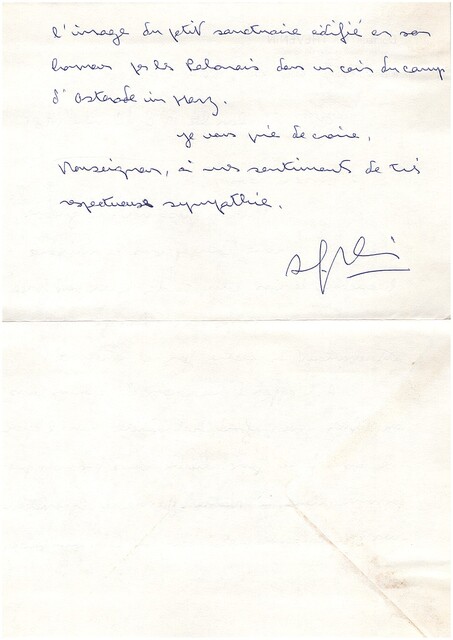 l'image du petit sanctuaire édifié en son
honneur par les Polonais dans un coin du camp
d'Osterode im Harz.
Je vous prie de croire,
Monseigneur, à mes sentiments de très
respectueuse sympathie.